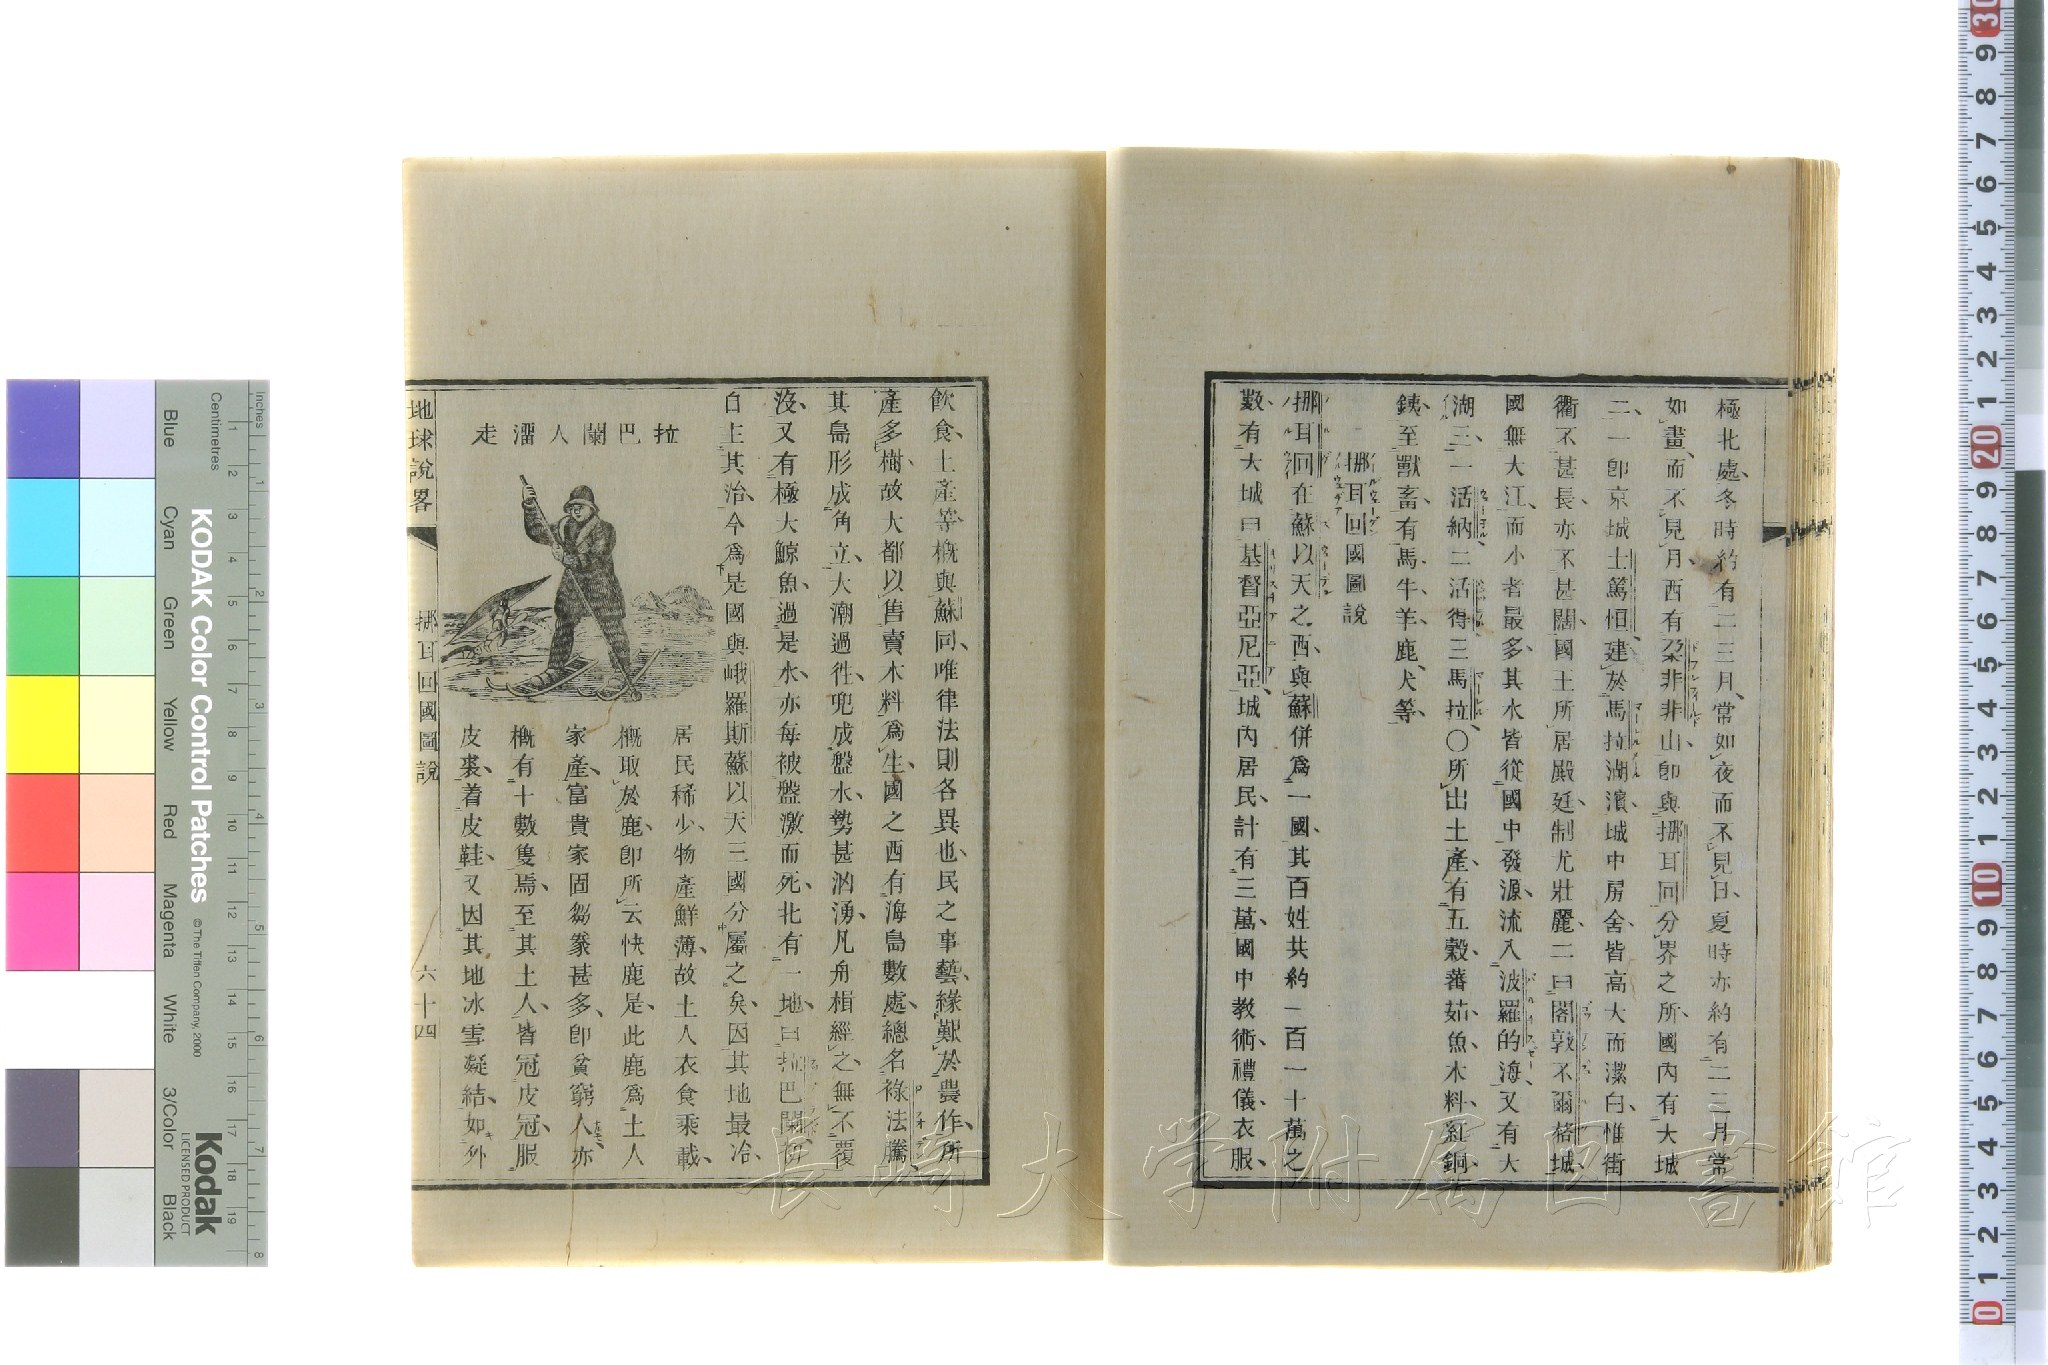 極北處冬時約有二三月常如夜而不見日夏時亦約有二三月常
如晝而不見月西有朶非非山卽與挪耳回分界之所國內有大城
二一卽京城士篤恒建於馬拉湖濱城中房舍皆高大而潔白惟街
衢不甚長亦不甚闊國王所居殿廷制尤壯麗二曰閣敦不爾格城
國無大江而小者最多其水皆從國中發源流入波羅的海又有大
湖三一活納二活得三馬拉〇所出土產有五穀蕃茹魚木料紅銅
銕至獸畜有馬牛羊鹿犬等
挪耳回國圖說
挪耳回在蘇以天之西與蘇併爲一國其百姓共約一百一十萬之
數有大城曰基督亞尼亞城內居民計有三萬國中教術禮儀衣服
飲食土產等槪與蘇同唯律法則各異也民之事藝緣艱於農作所
產多樹故大都以售賣木料爲生國之西有海島數處總名祿法騰
其島形成角立大潮過徃兜成盤水勢甚汹湧凡舟楫經之無不覆
沒又有極大鯨魚過是水亦每被盤激而死北有一地曰拉巴闌初
自主其治今爲是國與峨羅斯蘇以天三國分屬之矣因其地最冷
拉巴闌人溜走
居民稀少物產鮮薄故土人衣食乘載
槪取於鹿卽所云快鹿是此鹿爲土人
家產富貴家固芻豢甚多卽貧窮人亦
槪有十數隻焉至其土人皆冠皮冠服
皮裘着皮鞋又因其地冰雪凝結如外
地球說畧
挪耳回國圖說
六十四
長崎大学附属図書館
KODAK Color Control Patches
© The Tiffen Company, 2000
Kodak
LICENSED PRODUCT
Inches
Centimetres
Blue
Cyan
Green
Yellow
Red
Magenta
White
3/Color
Black